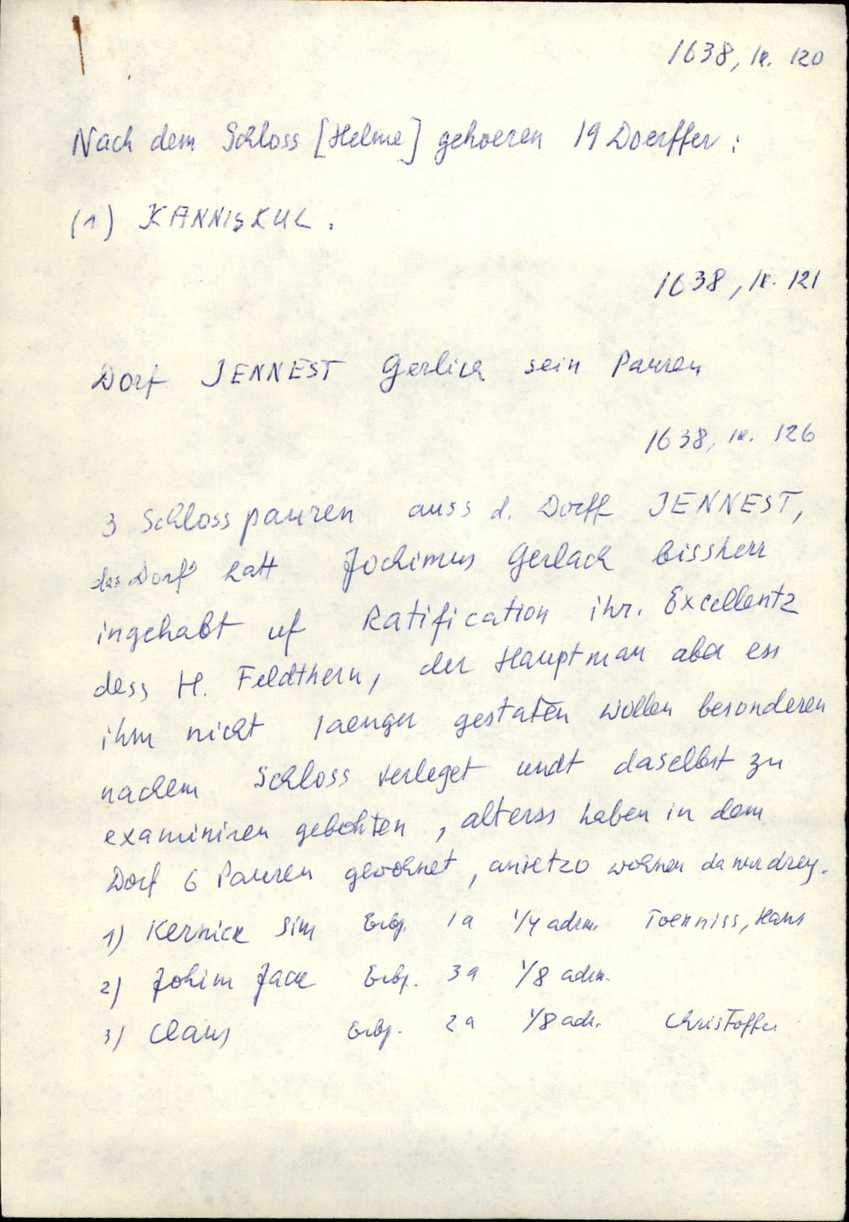 1638, lk. 120
Nach dem Schloss [Helme] gehoeren 19 Doerffer:
(1) KANNISKUL.
1638, lk. 121
Dorf JENNEST Gerlich sein Pauren
1638, lk. 126
3 Schlosspauren auss d. Dorff JENNEST,
das Dorf hatt Jochimus Gerlach bissherr
ingehabt uf Ratification ihr. Excellentz
dess H. Feldthern, der Hauptman aber ess
ihm nicht laenger gestaten wollen besonderen
nachem Schloss verleget undt daselbst zu
examiniren gebohten, alterss haben in dem
Dorf 6 Pauren gewohnet, anietzo wohnen da nur drey.
1) Kernick Sim Erbj. 1a 1/4 adrm. Toenniss, Hans
2) Johim Jack Erbj. 3a 1/8 adrm.
3) Claus Erbj. 2a 1/8 adr. Christoffer